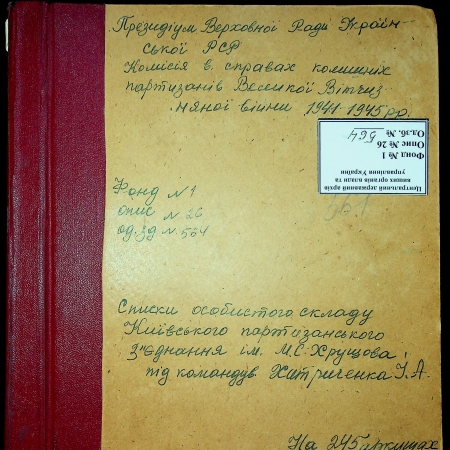 Президіум Верховної Ради Україн-
ської РСР
Комісія в справах колишніх
партизанів Великої Вітчиз
няної війни 1941-1945 рр.
Центральний державний архів
вищих органів влади та
управління України
Фонд № 1
Опис № 26
Од.зб. № 564
Фонд N 1
опис N 26
од.зд N. 564
Списки особистого складу
Київського партизанського
з'єднання ім. М.С. Хрущова
під командув. Хитриченка І.А.
На 245 аркушах